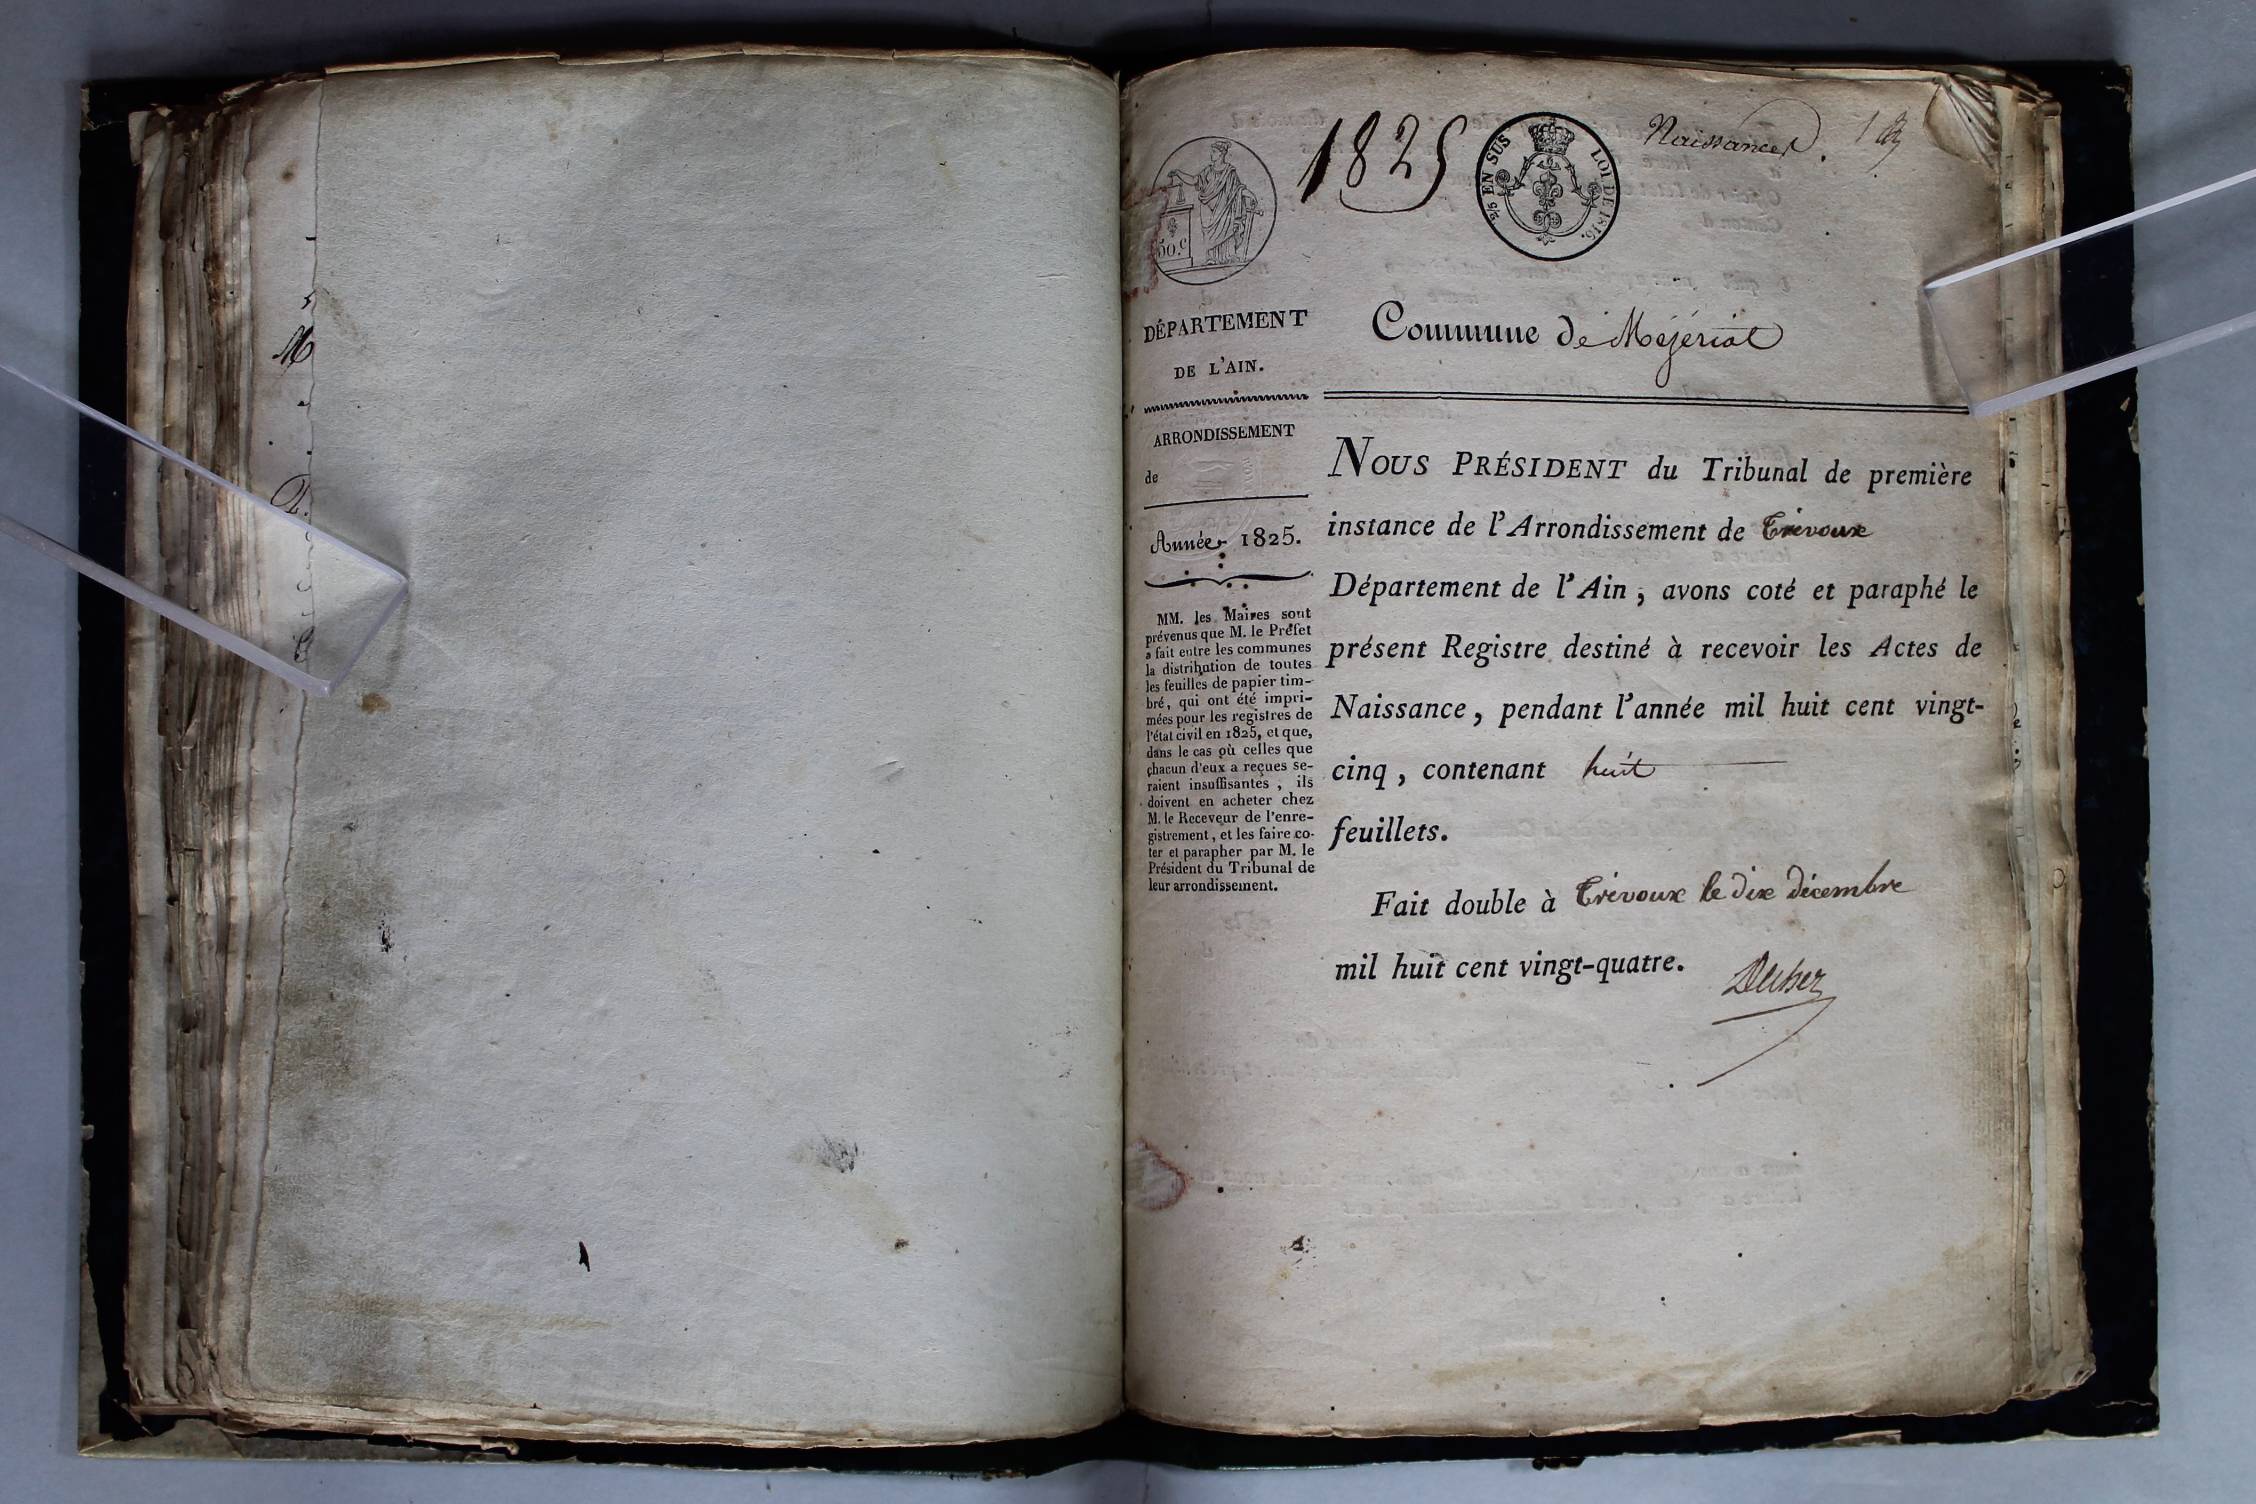 M
1825
Naissances.
50.c
2/5 EN SUS
LOI DE 1816.
DÉPARTEMENT
DE L'AIN.
Commune de Méjériat
ARRONDISSEMENT
de
Année 1825.
MM. les Maires sont
prévenus que M. le Préfet
a fait entre les communes
la distribution de toutes
les feuilles de papier tim-
bré, qui ont été impri-
mées pour les registres de
l'état civil en 1825, et que,
dans le cas où celles que
chacun d'eux a reçues se-
raient insuffisantes, ils
doivent en acheter chez
M. le Receveur de l'enre-
gistrement, et les faire co-
ter et parapher par M. le
Président du Tribunal de
leur arrondissement.
NOUS PRÉSIDENT du Tribunal de première
instance de l'Arrondissement de Trévoux
Département de l'Ain, avons coté et paraphé le
présent Registre destiné à recevoir les Actes de
Naissance, pendant l'année mil huit cent vingt-
cinq, contenant huit
feuillets.
Fait double à Trévoux le dix décembre
mil huit cent vingt-quatre.